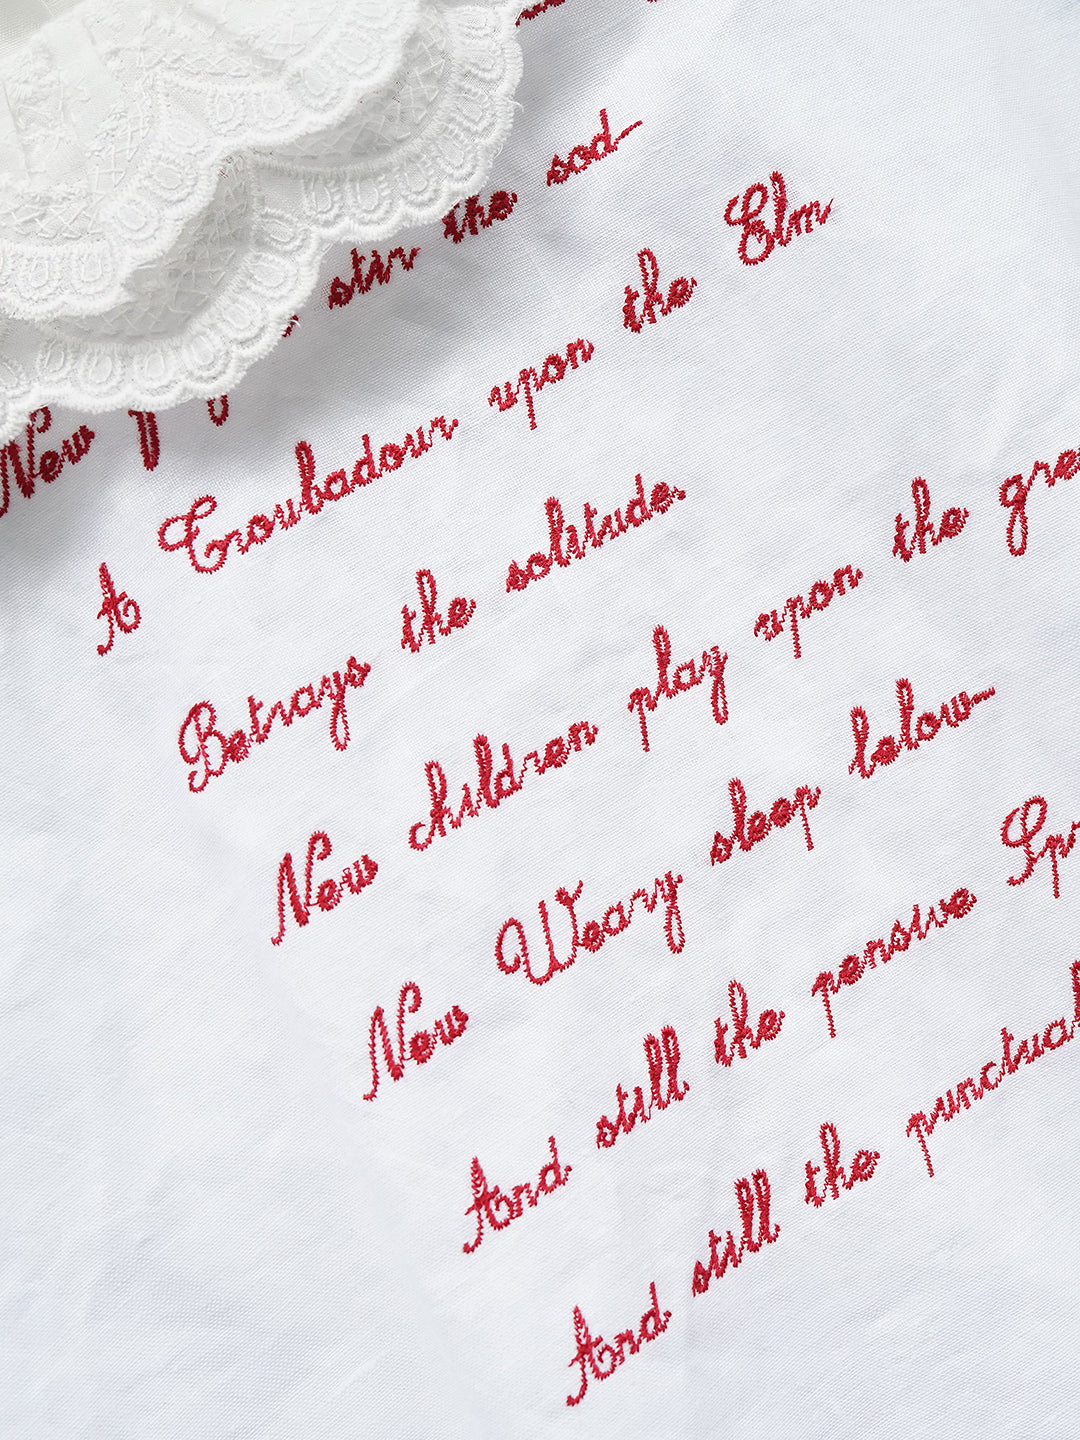 New stir the sod—
A Troubadour upon the Elm
Betrays the solitude.
New children play upon the
New Weary sleep below—
And still the pensive
And still the punctual